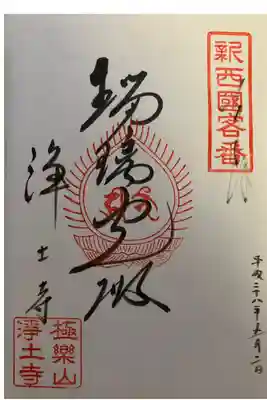 新西國客番
平成二十八年五月二日
瑠璃光殿
浄土寺
極樂山
淨土寺